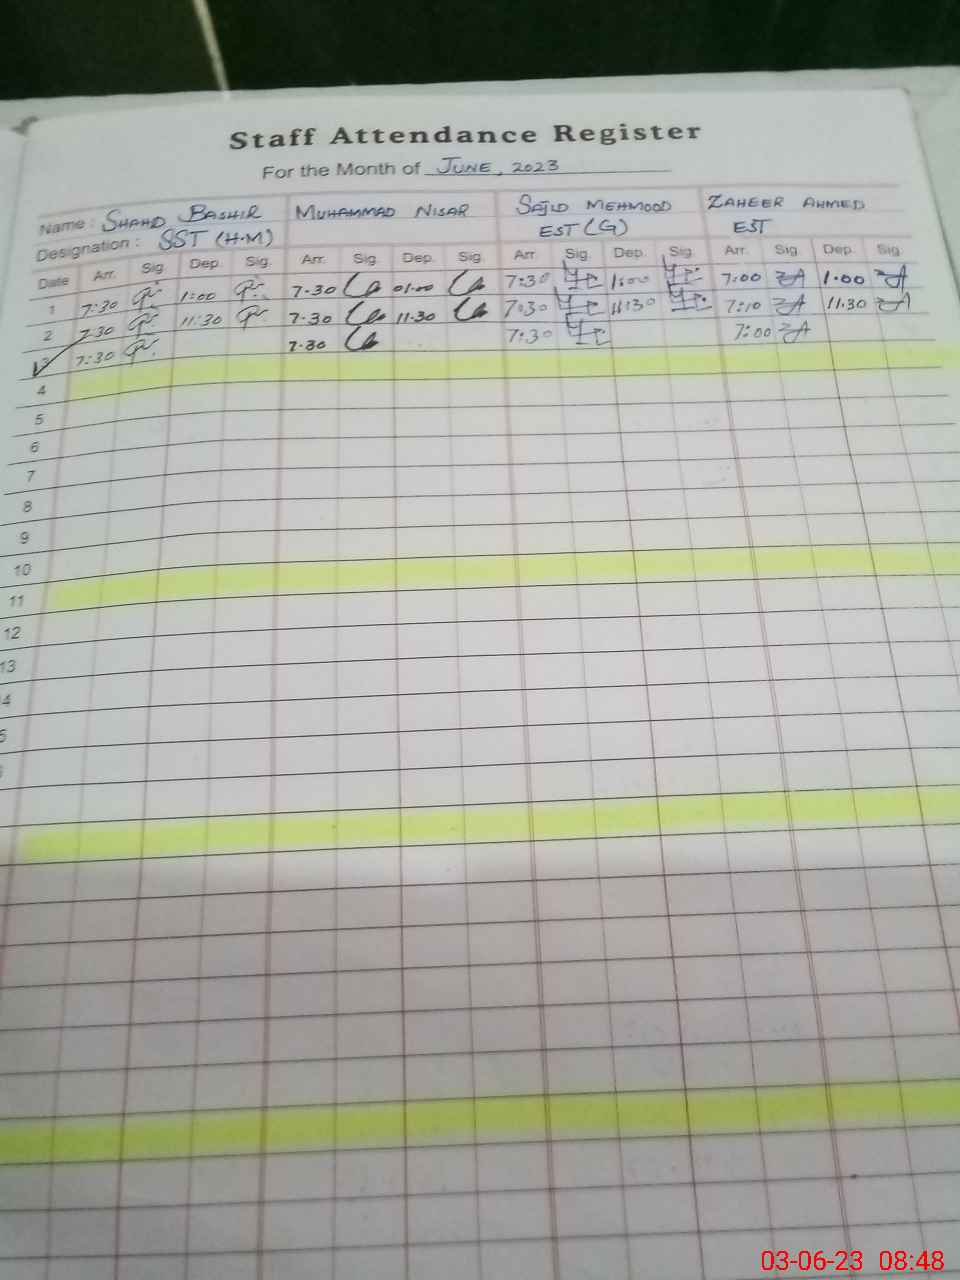 Staff Attendance Register
For the Month of JUNE, 2023
Name: SHAHD BASHIR MUHAMMAD NISAR SAJID MEHMOOD ZAHEER AHMED
Designation: SST (H.M) EST (G) EST
Date Arr. Sig. Dep. Sig. Arr. Sig. Dep. Sig. Arr. Sig. Dep. Sig. Arr. Sig. Dep. Sig.
1 7:30 1:00 7.30 01.00 7:30 1:00 7:00 1.00
2 7:30 11:30 7.30 11.30 7:30 11:30 7:10 11.30
3 7:30 7.30 7:30 7:00
4
5
6
7
8
9
10
11
12
13
03-06-23 08:48